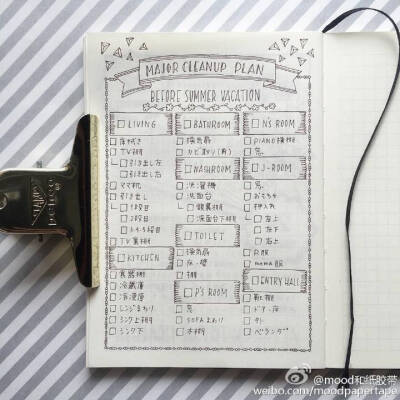 MAJOR CLEANUP PLAN
BEFORE SUMMER VACATION
LIVING
床拭き
TV棚
引き出し左
引き出し右
ママ机
引き出し
1段目
2段目
TV裏棚
KITCHEN
食器棚
冷蔵庫
レンジまわり
シンク上棚
シンク下
BATHROOM
換気扇
カビ取り
WASHROOM
洗濯機
洗面台
洗面台下棚
TOILET
換気扇
床・壁
棚
P'S ROOM
窓
SOFAまわり
本棚
N'S ROOM
PIANO横棚
窓
J-ROOM
窓
おもちゃ
押入れ
左上
左下
右上
右下
ENTRY HALL
靴棚
ドア・床
ベランダ
@mood和纸胶带
weibo.com/moodpapertape